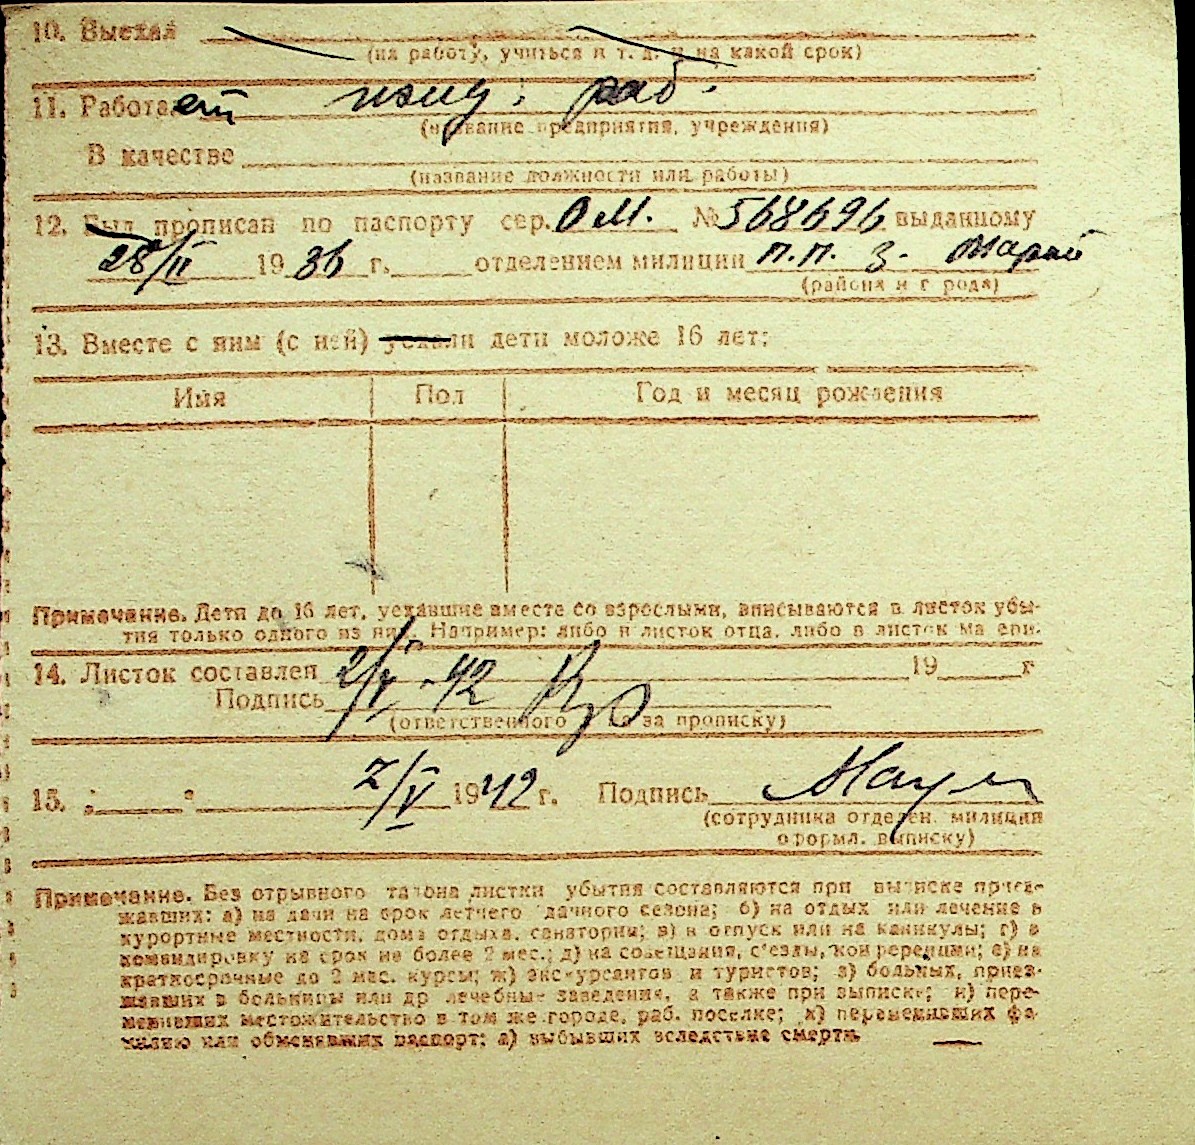 10. Выехал
(на работу, учиться и т. д. и на какой срок)
11. Работает раб.
(название предприятия, учреждения)
В качестве
(название должности или работы)
12. Был прописан по паспорту сер. ОМ. № 568696 выданному
28/II 1936 г. отделением милиции п.п. З.
(района и города)
13. Вместе с ним (с ней) уехали дети моложе 16 лет:
Имя Пол Год и месяц рождения
Примечание. Дети до 16 лет, уехавшие вместе со взрослыми, вписываются в листок убы-
тия только одного из них. Например: либо в листок отца, либо в листок матери.
14. Листок составлен 2/V-42 19 г
Подпись
(ответственного за прописку)
15. " " 2/V 1942 г. Подпись
(сотрудника отделен. милиции
оформл. выписку)
Примечание. Без отрывного талона листки убытия составляются при выписке приез-
жавших: а) на дачи на срок летнего дачного сезона; б) на отдых или лечение в
курортные местности, дома отдыха, санатории; в) в отпуск или на каникулы; г) в
командировку на срок не более 2 мес.; д) на совещания, съезды, конференции; е) на
краткосрочные до 2 мес. курсы; ж) экскурсантов и туристов; з) больных, приез-
жавших в больницы или др лечебные заведения, а также при выписке; и) пере-
менивших местожительство в том же городе, раб. поселке; к) переменивших фа-
милию или обменявших паспорт; л) выбывших вследствие смерти.